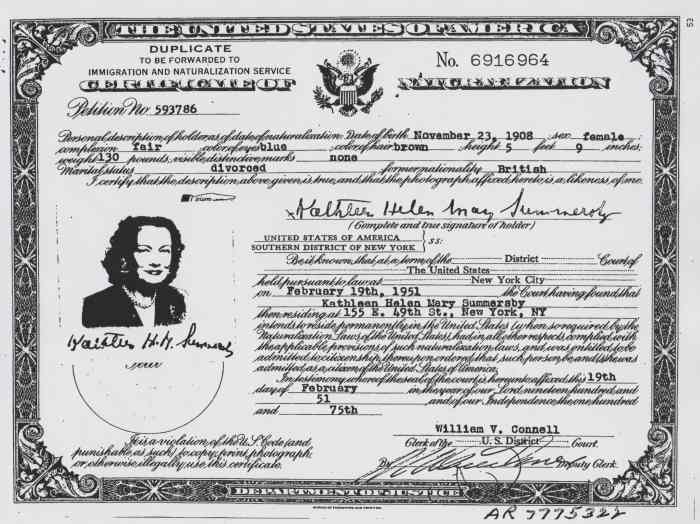 53
THE UNITED STATES OF AMERICA
DUPLICATE
TO BE FORWARDED TO
IMMIGRATION AND NATURALIZATION SERVICE
No. 6916964
CERTIFICATE OF NATURALIZATION
Petition No 593786
Personal description of holder as of date of naturalization: Date of birth November 23, 1908 sex female
complexion fair color of eyes blue color of hair brown height 5 feet 9 inches;
weight 130 pounds, visible distinctive marks none
Marital status divorced former nationality British
I certify that the description above given is true, and that the photograph affixed hereto is a likeness of me.
Kathleen Helen May Summersby
(Complete and true signature of holder)
UNITED STATES OF AMERICA
SOUTHERN DISTRICT OF NEW YORK } ss:
Be it known, that at a term of the District Court of
The United States
held pursuant to law at New York City
on February 19th, 1951 the Court having found that
Kathleen Helen Mary Summersby
then residing at 155 E. 49th St., New York, NY
intends to reside permanently in the United States (when so required by the
Naturalization Laws of the United States), had in all other respects complied with
the applicable provisions of such naturalization laws, and was entitled to be
admitted to citizenship, thereupon ordered that such person be and (s)he was
admitted as a citizen of the United States of America.
In testimony whereof the seal of the court is hereunto affixed this 19th
day of February in the year of our Lord nineteen hundred and
51 and of our Independence the one hundred
and 75th
Kathleen H.M. Summersby
Seal
It is a violation of the U.S. Code (and
punishable as such) to copy, print, photograph,
or otherwise illegally use this certificate.
William V. Connell
Clerk of the U.S. District Court.
By Deputy Clerk.
DEPARTMENT OF JUSTICE
AR 7775322